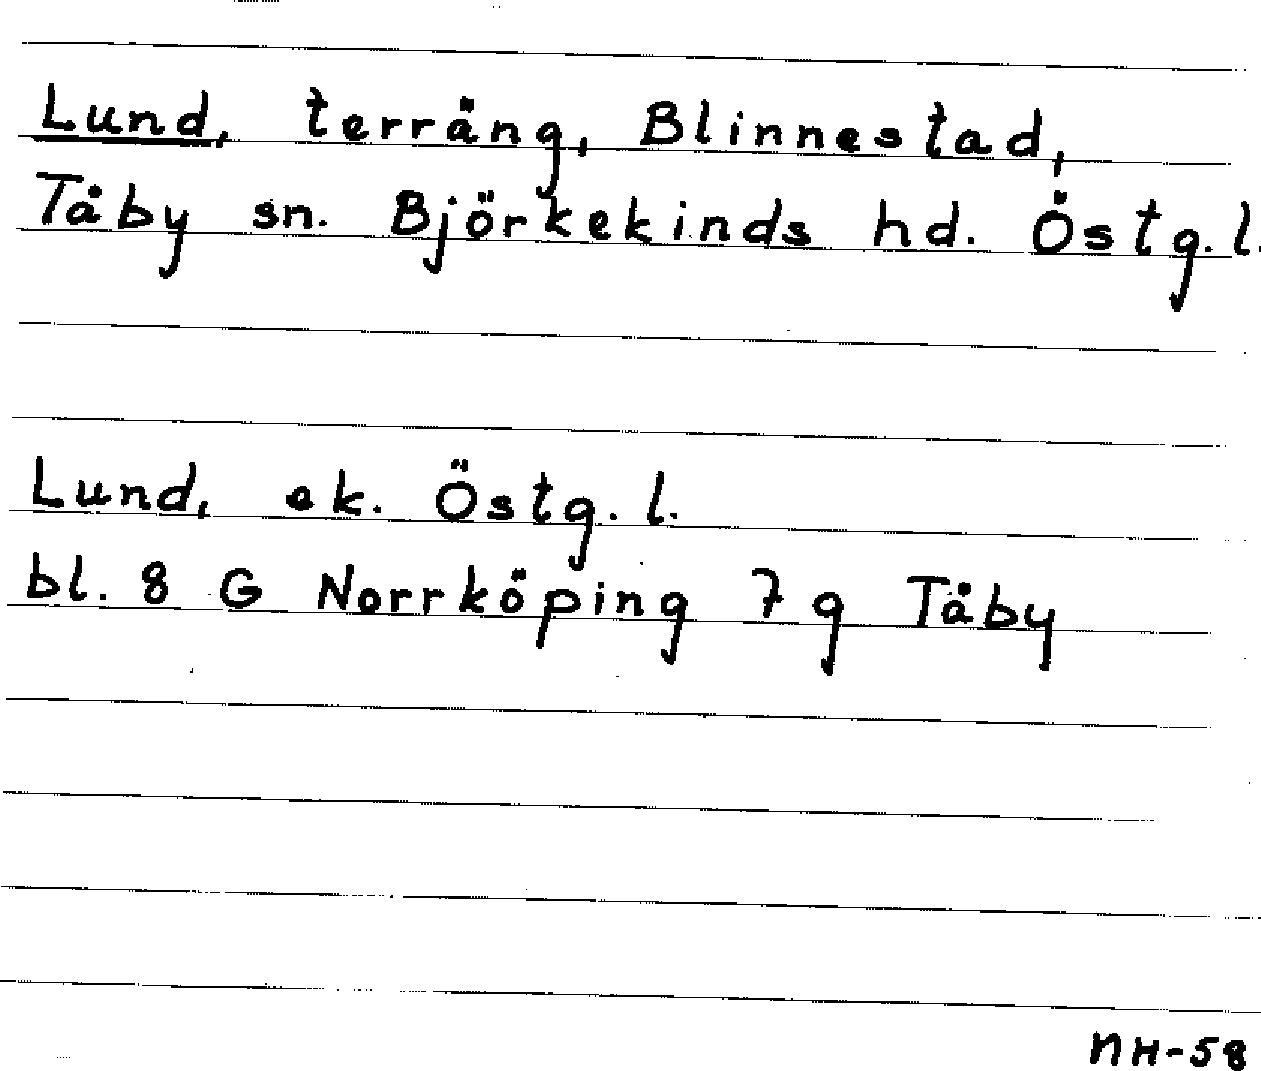 Lund, terräng, Blinnestad,
Tåby sn. Björkekinds hd. Östg. l.
Lund, ek. Östg. l.
bl. 8 G Norrköping 7 g Tåby
NH-58